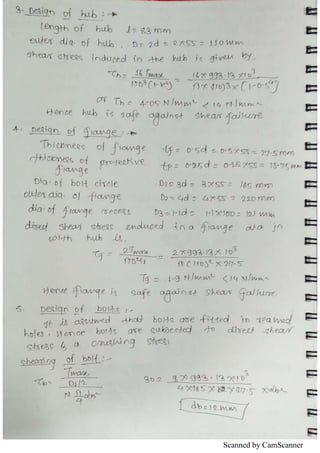 3. Design of hub :-
Length of hub l = 83 mm
outer dia. of hub, D = 2d = 2×55 = 110 mm
shear stress induced in the hub is given by,
Th = 16 Tmax / πD³(1-k⁴) = 16×993.13×10³ / π×(110)³×[1-0.5⁴]
or Th = 4.05 N/mm² < 14 N/mm²
Hence hub is safe against shear failure
4. Design of flange :-
Thickness of flange tf = 0.5d = 0.5×55 = 27.5 mm
thickness of protective flange tp = 0.25d = 0.25×55 = 13.75 mm
Dia. of bolt circle D1 = 3d = 3×55 = 165 mm
outer dia. of flange D2 = 4d = 4×55 = 220 mm
dia. of flange recess D3 = 1.1D = 1.1×100 = 121 mm
direct shear stress induced in a flange at a jn
with hub is,
Tf = 2Tmax / πD²tf = 2×993.13×10³ / π(110)²×27.5
Tf = 1.9 N/mm² < 14 N/mm²
Hence flange is safe against shear failure.
5. Design of bolts :-
It is assumed that bolts are fitted in reamed
holes. Hence bolts are subjected to direct shear
stress & a crushing stress
shearing of bolt :-
Tb = Tmax / D1/2 / N π/4 db²
30 = 8×993.13×10³ / 4×165××27.5 ×db²
db = 12 mm
Scanned by CamScanner